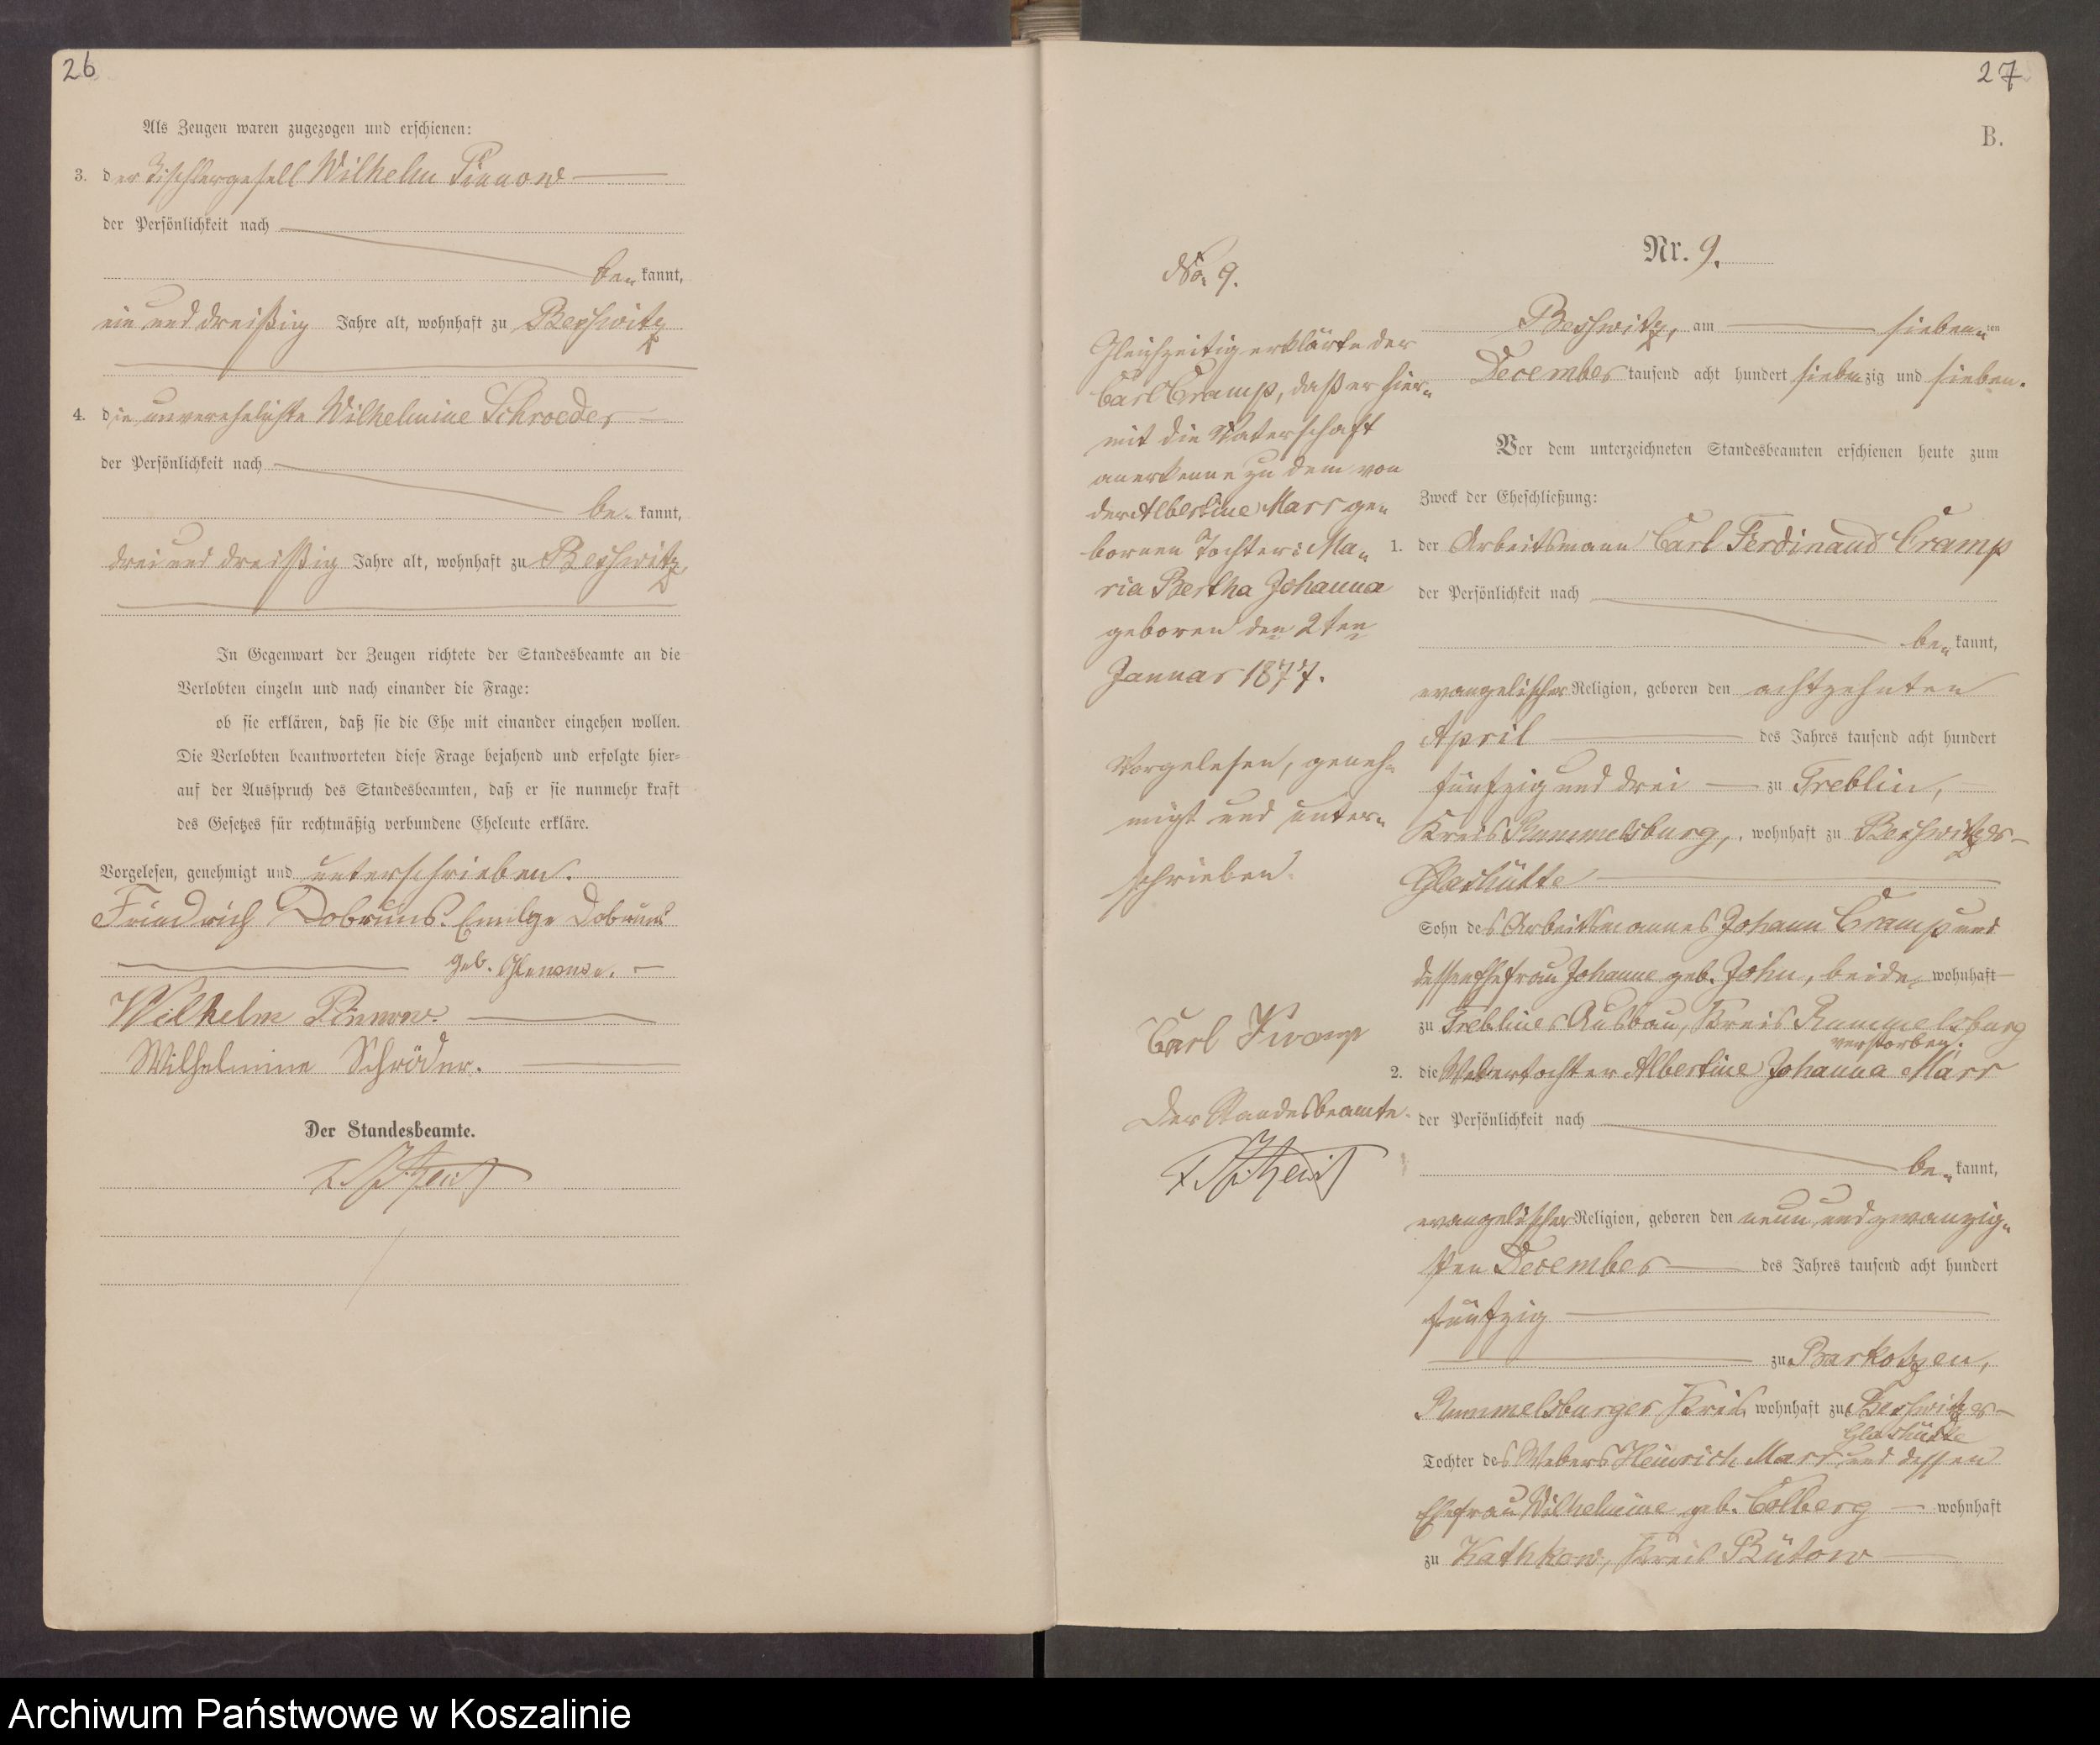 26
Als Zeugen waren zugezogen und erschienen:
3. der Tischlergesell Wilhelm Pinnow
der Persönlichkeit nach
be- kannt,
ein und dreißig Jahre alt, wohnhaft zu Beßwitz
4. die unverehelichte Wilhelmine Schroeder
der Persönlichkeit nach
be- kannt,
drei und dreißig Jahre alt, wohnhaft zu Beßwitz
In Gegenwart der Zeugen richtete der Standesbeamte an die
Verlobten einzeln und nach einander die Frage:
ob sie erklären, daß sie die Ehe mit einander eingehen wollen.
Die Verlobten beantworteten diese Frage bejahend und erfolgte hier-
auf der Ausspruch des Standesbeamten, daß er sie nunmehr kraft
des Gesetzes für rechtmäßig verbundene Eheleute erkläre.
Vorgelesen, genehmigt und unterschrieben.
Friedrich
geb.
Wilhelm Pinnow.
Wilhelmine Schröder.
Der Standesbeamte.
27
B.
No. 9.
Gleichzeitig erklärte der
Carl Cramp, daß er hier-
mit die Vaterschaft
anerkenne zu dem von
der Albertine Marr ge-
bornen Tochter: Ma-
ria Bertha Johanna
geboren den 2ten
Januar 1877.
Vorgelesen, geneh-
migt und unter-
schrieben.
Carl Kramp
Der Standesbeamte.
Nr. 9.
Beßwitz, am sieben-ten
December tausend acht hundert siebenzig und sieben.
Vor dem unterzeichneten Standesbeamten erschienen heute zum
Zweck der Eheschließung:
1. der Arbeitsmann Carl Ferdinand Cramp
der Persönlichkeit nach
be- kannt,
evangelischer Religion, geboren den achtzehnten
April des Jahres tausend acht hundert
fünfzig und drei zu Treblin,
Kreis Rummelsburg, wohnhaft zu Beßwitzer-
Glashütte
Sohn des Arbeitsmannes Johann Cramp und
dessen Ehefrau Johanne geb. John, beide, wohnhaft
zu Trebliner Ausbau, Kreis Rummelsburg
verstorben.
2. die Webertochter Albertine Johanna Marr
der Persönlichkeit nach
be- kannt,
evangelischer Religion, geboren den neun und zwanzig-
sten December des Jahres tausend acht hundert
fünfzig
zu Barkotzen,
Rummelsburger Kreis, wohnhaft zu Beßwitzer-
Glashütte
Tochter des Webers Heinrich Marr und dessen
Ehefrau Wilhelmine geb. Colberg wohnhaft
zu Kathkow, Kreis Bütow
Archiwum Państwowe w Koszalinie